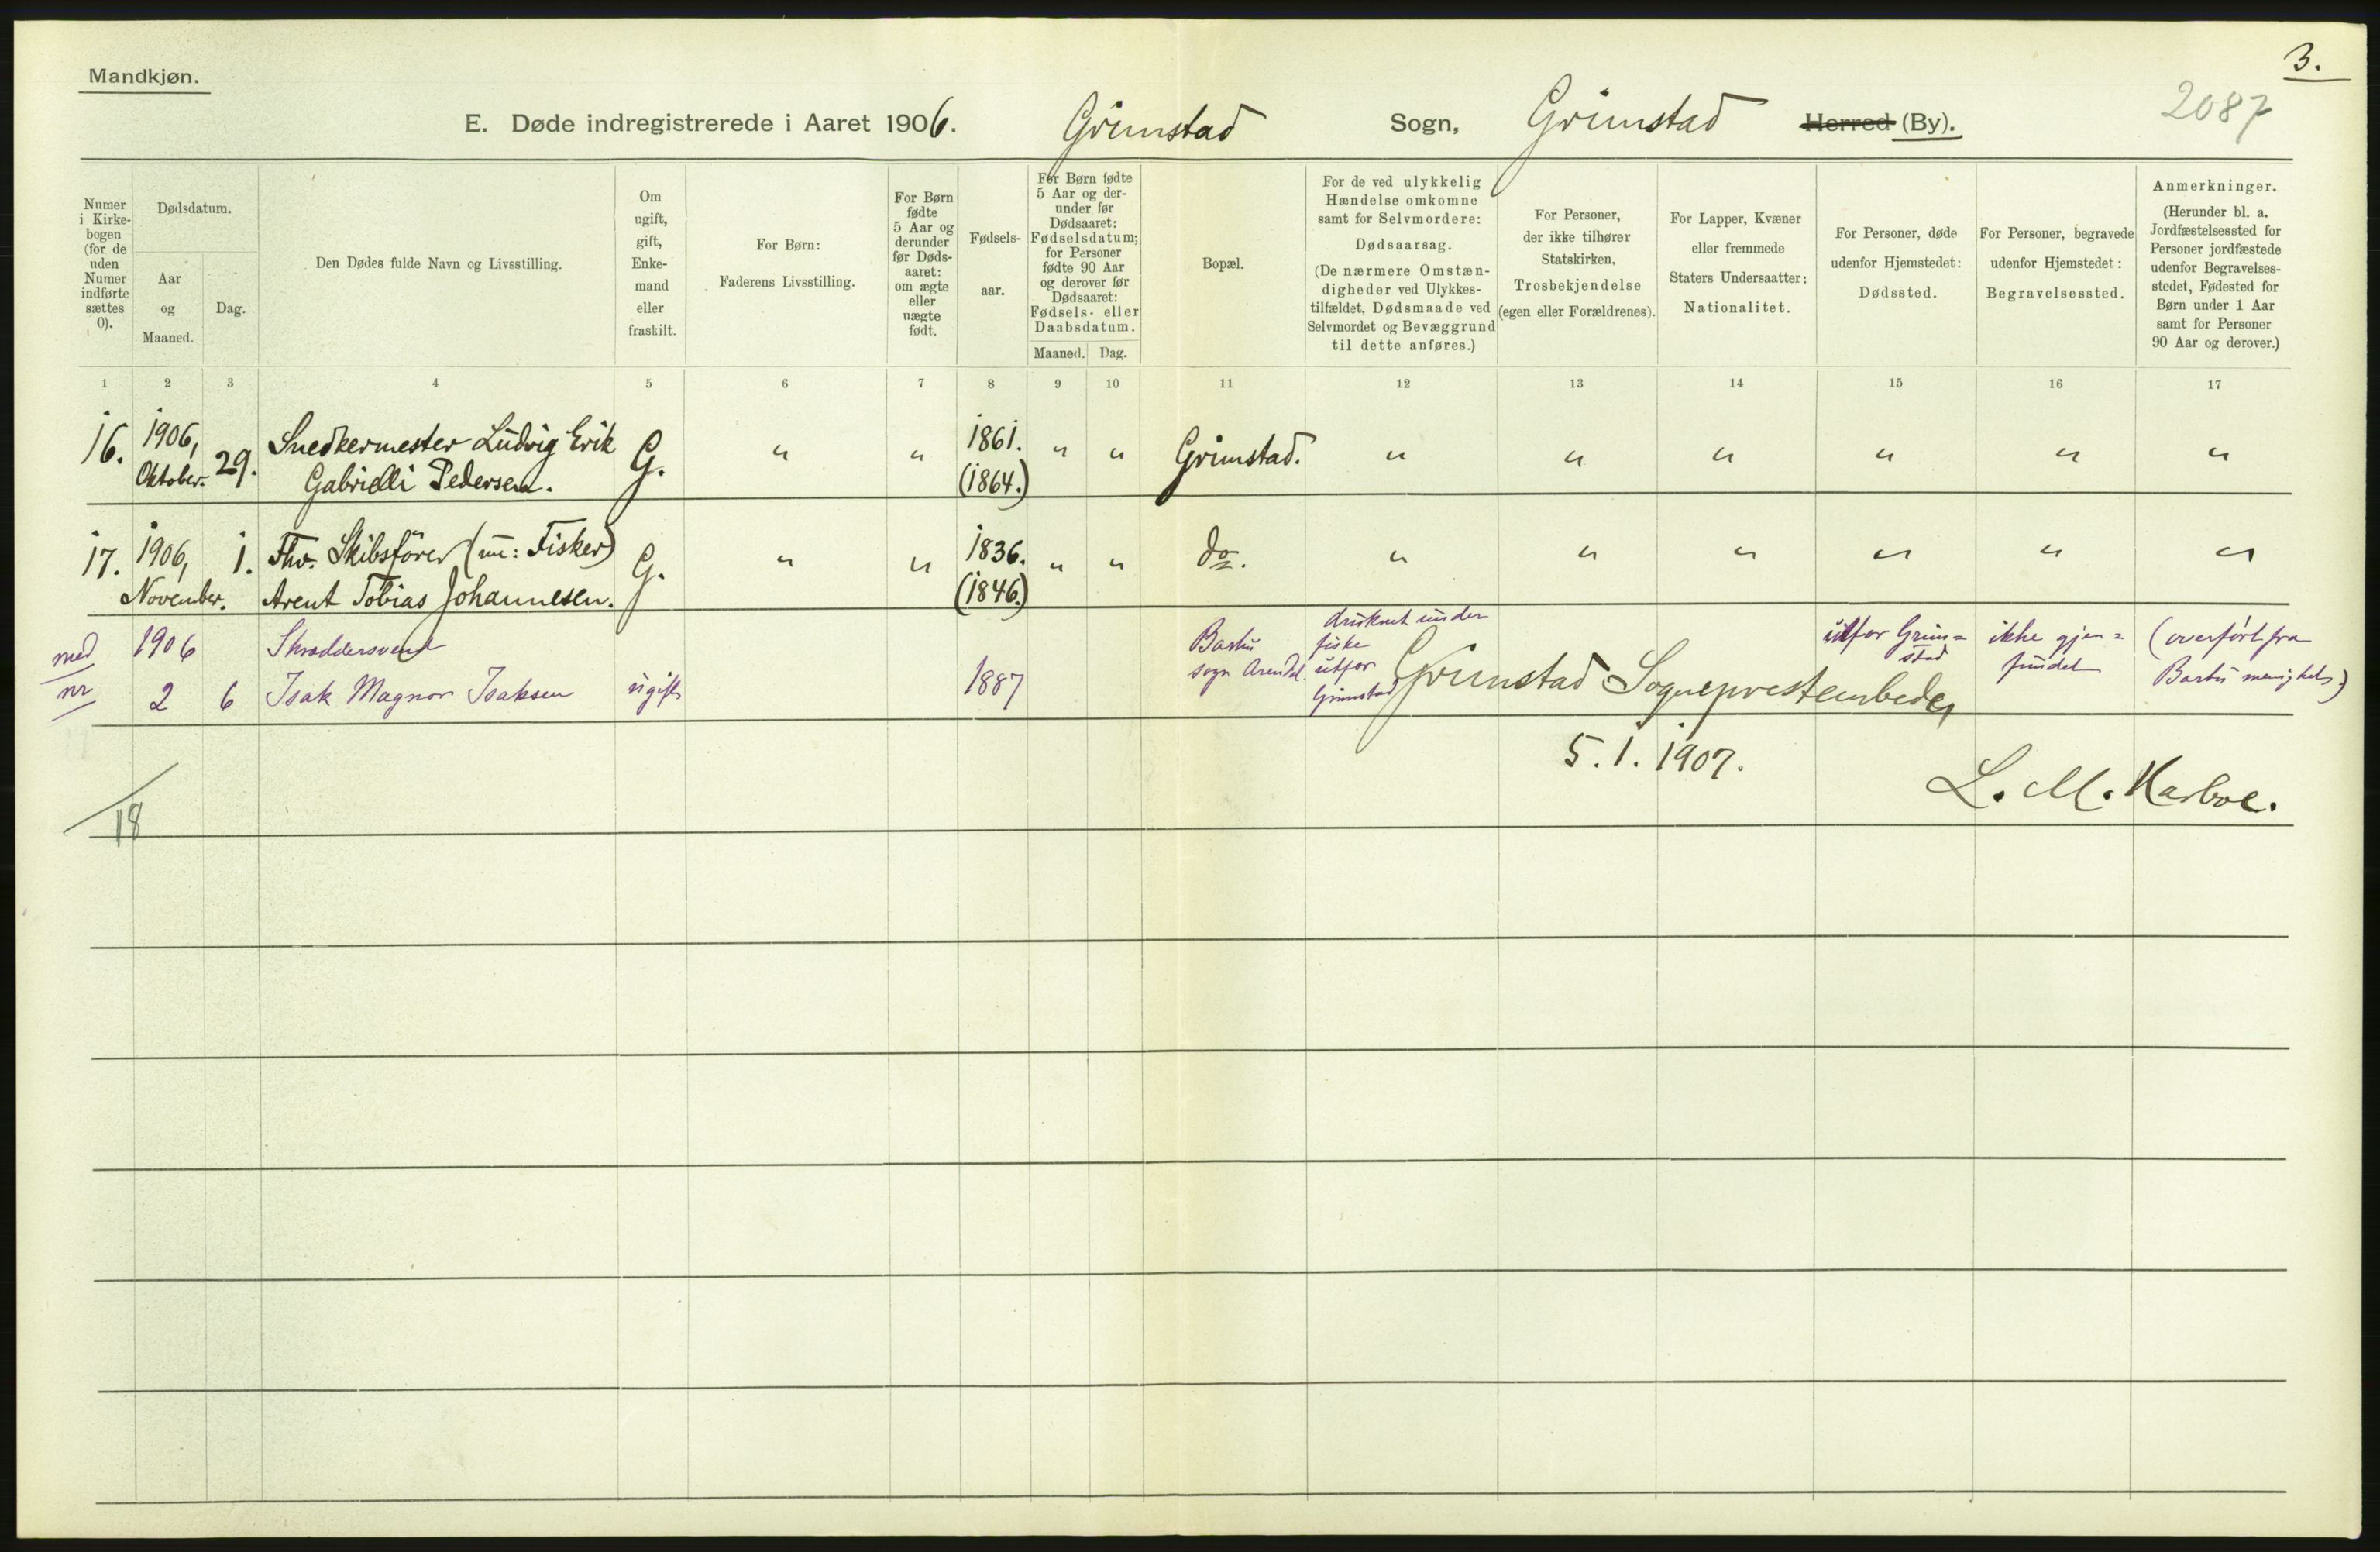 3.
Mandkjøn.
2087
E. Døde indregistrerede i Aaret 1906. Grimstad Sogn, Grimstad Herred (By).
Numer i Kirke-bogen (for de uden Numer indførte sættes 0).
Dødsdatum.
Aar og Maaned.
Dag.
Den Dødes fulde Navn og Livsstilling.
Om ugift, gift, Enke-mand eller fraskilt.
For Børn: Faderens Livsstilling.
For Børn fødte 5 Aar og derunder før Døds-aaret: om ægte eller uægte født.
Fødsels-aar.
For Børn fødte 5 Aar og der-under før Dødsaaret: Fødselsdatum; for Personer fødte 90 Aar og derover før Dødsaaret: Fødsels- eller Daabsdatum.
Maaned. Dag.
Bopæl.
For de ved ulykkelig Hændelse omkomne samt for Selvmordere: Dødsaarsag. (De nærmere Omstæn-digheder ved Ulykkes-tilfældet, Dødsmaade ved Selvmordet og Bevæggrund til dette anføres.)
For Personer, der ikke tilhører Statskirken, Trosbekjendelse (egen eller Forældrenes).
For Lapper, Kvæner eller fremmede Staters Undersaatter: Nationalitet.
For Personer, døde udenfor Hjemstedet: Dødssted.
For Personer, begravede udenfor Hjemstedet: Begravelsessted.
Anmerkninger. (Herunder bl. a. Jordfæstelsessted for Personer jordfæstede udenfor Begravelses-stedet, Fødested for Børn under 1 Aar samt for Personer 90 Aar og derover.)
1 2 3 4 5 6 7 8 9 10 11 12 13 14 15 16 17
16. 1906, Oktober. 29. Snedkermester Ludvig Erik Gabrielli Pedersen. G. " " 1861. (1864.) " " Grimstad. " " " " " "
17. 1906, November. 1. Fhv. Skibsfører (nu: Fisker) Arent Tobias Johannesen. G. " " 1836. (1846.) " " do. " " " " " "
med nr 1906 2 6 Skræddersvend Isak Magnor Isaksen ugift 1887 Barbu sogn Arendal. druknet under fiske utfor Grimstad utfor Grim=stad ikke gjen=fundet (overført fra Barbu menighet)
Grimstad Sogneprestembede,
5.1.1907.
L. M. Harboe.
18